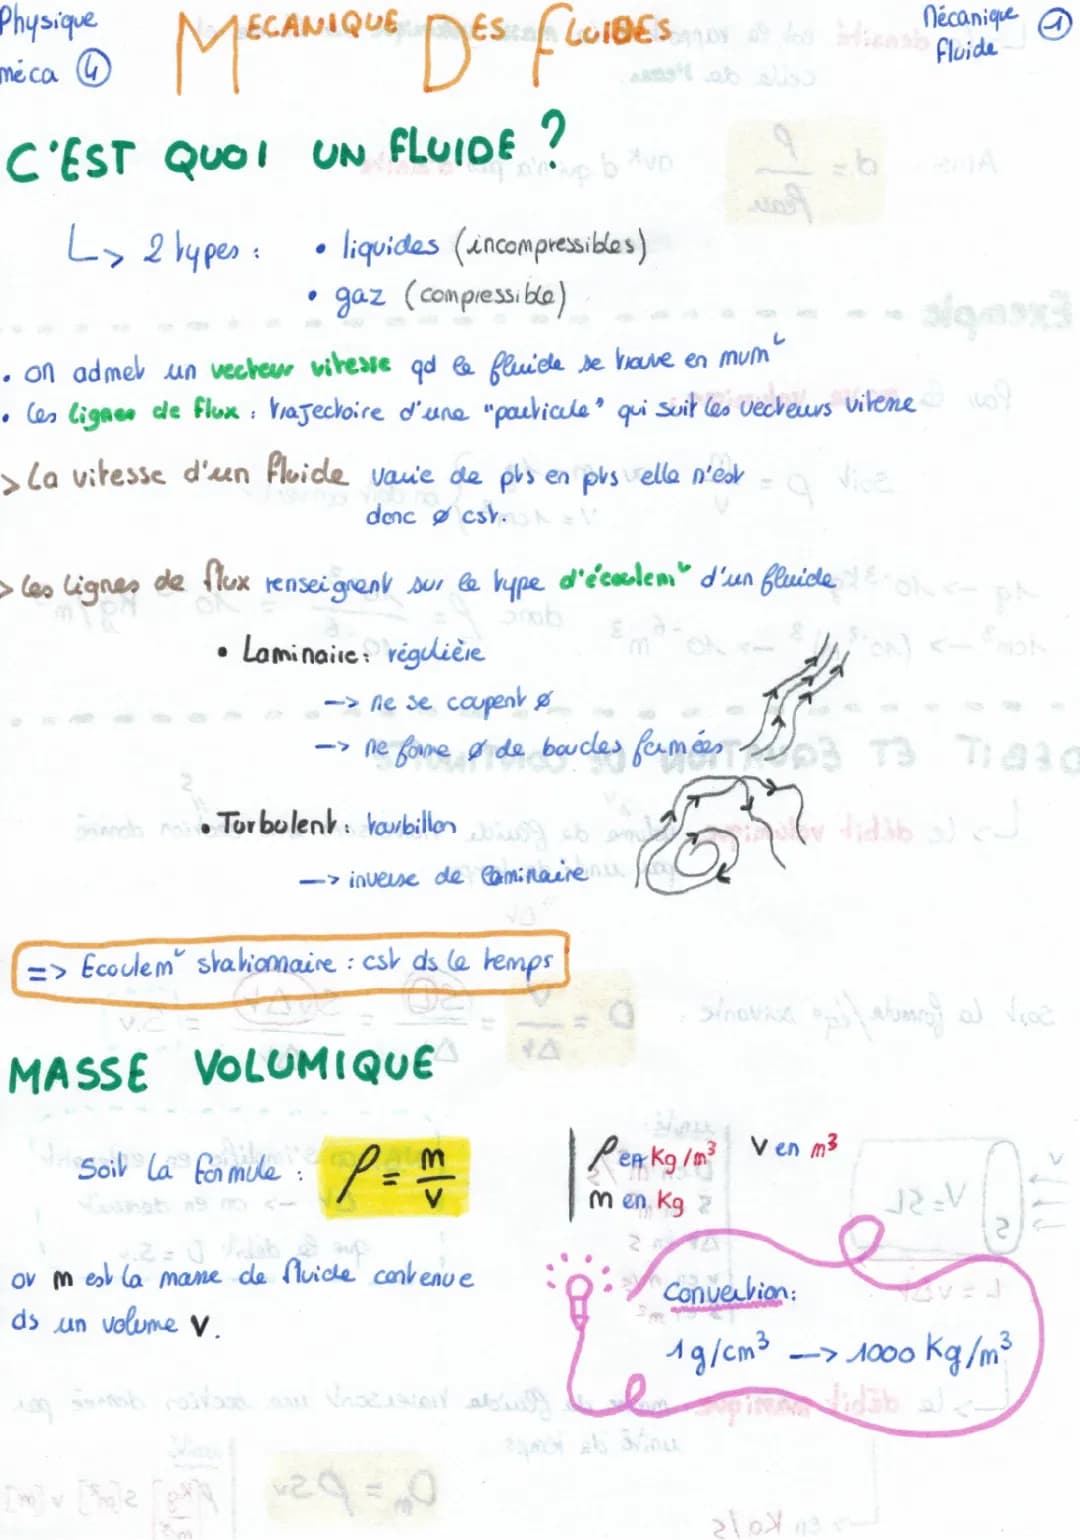 Physique
méca ④
MECANIQUE DES FLUIDES
Mécanique
Fluide
①
C'EST QUOI UN FLUIDE ?
↳ 2 types : • liquides (incompressibles)
• gaz (compressible)
• on admet un vecteur vitesse qd le fluide se trouve en mvmt
• les lignes de flux : trajectoire d'une "particule" qui suit les vecteurs vitesse
> La vitesse d'un fluide varie de pts en pts elle n'est
donc ø cst.
> les lignes de flux renseignent sur le type d'écoulemt d'un fluide
• Laminaire : régulière
-> ne se coupent ø
-> ne forme ø de boucles fermées
• Turbulent : tourbillon
-> inverse de laminaire
=> Ecoulemt stationnaire : cst ds le temps
MASSE VOLUMIQUE
Soit la formule : ρ = m/v
ρ en Kg/m³ V en m³
m en Kg
où m est la masse de fluide contenue
ds un volume V.
Convertion :
1g/cm³ -> 1000 Kg/m³